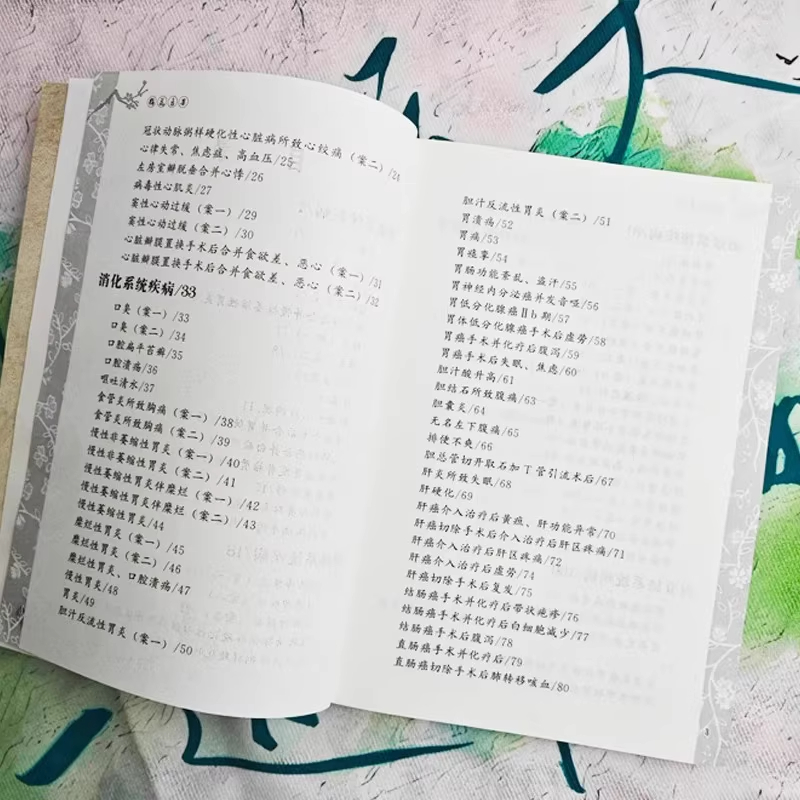 冠状动脉粥样硬化性心脏病所致心绞痛（案二）/24
心律失常、焦虑症、高血压/25
左房室瓣脱垂合并心悸/26
病毒性心肌炎/27
窦性心动过缓（案一）/29
窦性心动过缓（案二）/30
心脏瓣膜置换手术后合并食欲差、恶心（案一）/31
心脏瓣膜置换手术后合并食欲差、恶心（案二）/32
消化系统疾病/33
口臭（案一）/33
口臭（案二）/34
口腔扁平苔藓/35
口腔溃疡/36
呕吐清水/37
食管炎所致胸痛（案一）/38
食管炎所致胸痛（案二）/39
慢性非萎缩性胃炎（案一）/40
慢性非萎缩性胃炎（案二）/41
慢性萎缩性胃炎伴糜烂（案一）/42
慢性萎缩性胃炎伴糜烂（案二）/43
慢性萎缩性胃炎/44
糜烂性胃炎（案一）/45
糜烂性胃炎（案二）/46
糜烂性胃炎、口腔溃疡/47
慢性胃炎/48
胃炎/49
胆汁反流性胃炎（案一）/50
胆汁反流性胃炎（案二）/51
胃溃疡/52
胃痛/53
胃痉挛/54
胃肠功能紊乱、盗汗/55
胃神经内分泌癌并发音哑/56
胃低分化腺癌Ⅱb期/57
胃体低分化腺癌手术后虚劳/58
胃癌手术并化疗后腹泻/59
胃癌手术后失眠、焦虑/60
胆汁酸升高/61
胆结石所致腹痛/63
胆囊炎/64
无名左下腹痛/65
排便不爽/66
胆总管切开取石加T管引流术后/67
肝炎所致失眠/68
肝硬化/69
肝癌介入治疗后黄疸、肝功能异常/70
肝癌切除手术后介入治疗后肝区疼痛/71
肝癌介入治疗后肝区疼痛/72
肝癌介入治疗后虚劳/74
肝癌切除手术后复发/75
结肠癌手术并化疗后带状疱疹/76
结肠癌手术并化疗后白细胞减少/77
结肠癌手术后腹泻/78
直肠癌手术并化疗后/79
直肠癌切除手术后肺转移咳血/80